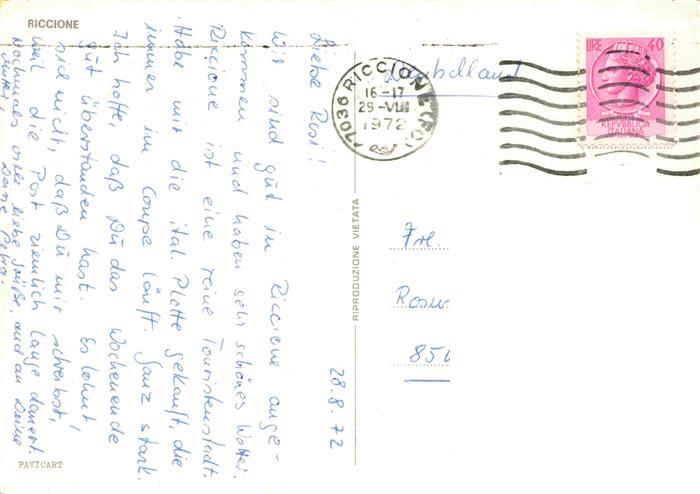 RICCIONE
28.8.72
Liebe Rosi!
Wir sind gut in Riccione ange-
kommen und haben sehr schönes Wetter.
Riccione ist eine reine Touristenstadt.
Habe mir die ital. Platte gekauft, die
immer im Coupe läuft. Ganz stark.
Ich hoffe, daß Du das Wochenende
gut überstanden hast. Es lohnt
sich nicht, daß Du mir schreibst,
weil die Post ziemlich lange dauert.
Nochmals viele liebe Grüße, auch an Deine
Mutter,
Deine Petra.
PAVICART
RIPRODUZIONE VIETATA
47036 RICCIONE (FO)
16-17
29-VIII
1972
LIRE 40
REPVBBLICA
ITALIANA
Frl.
Rosw
850